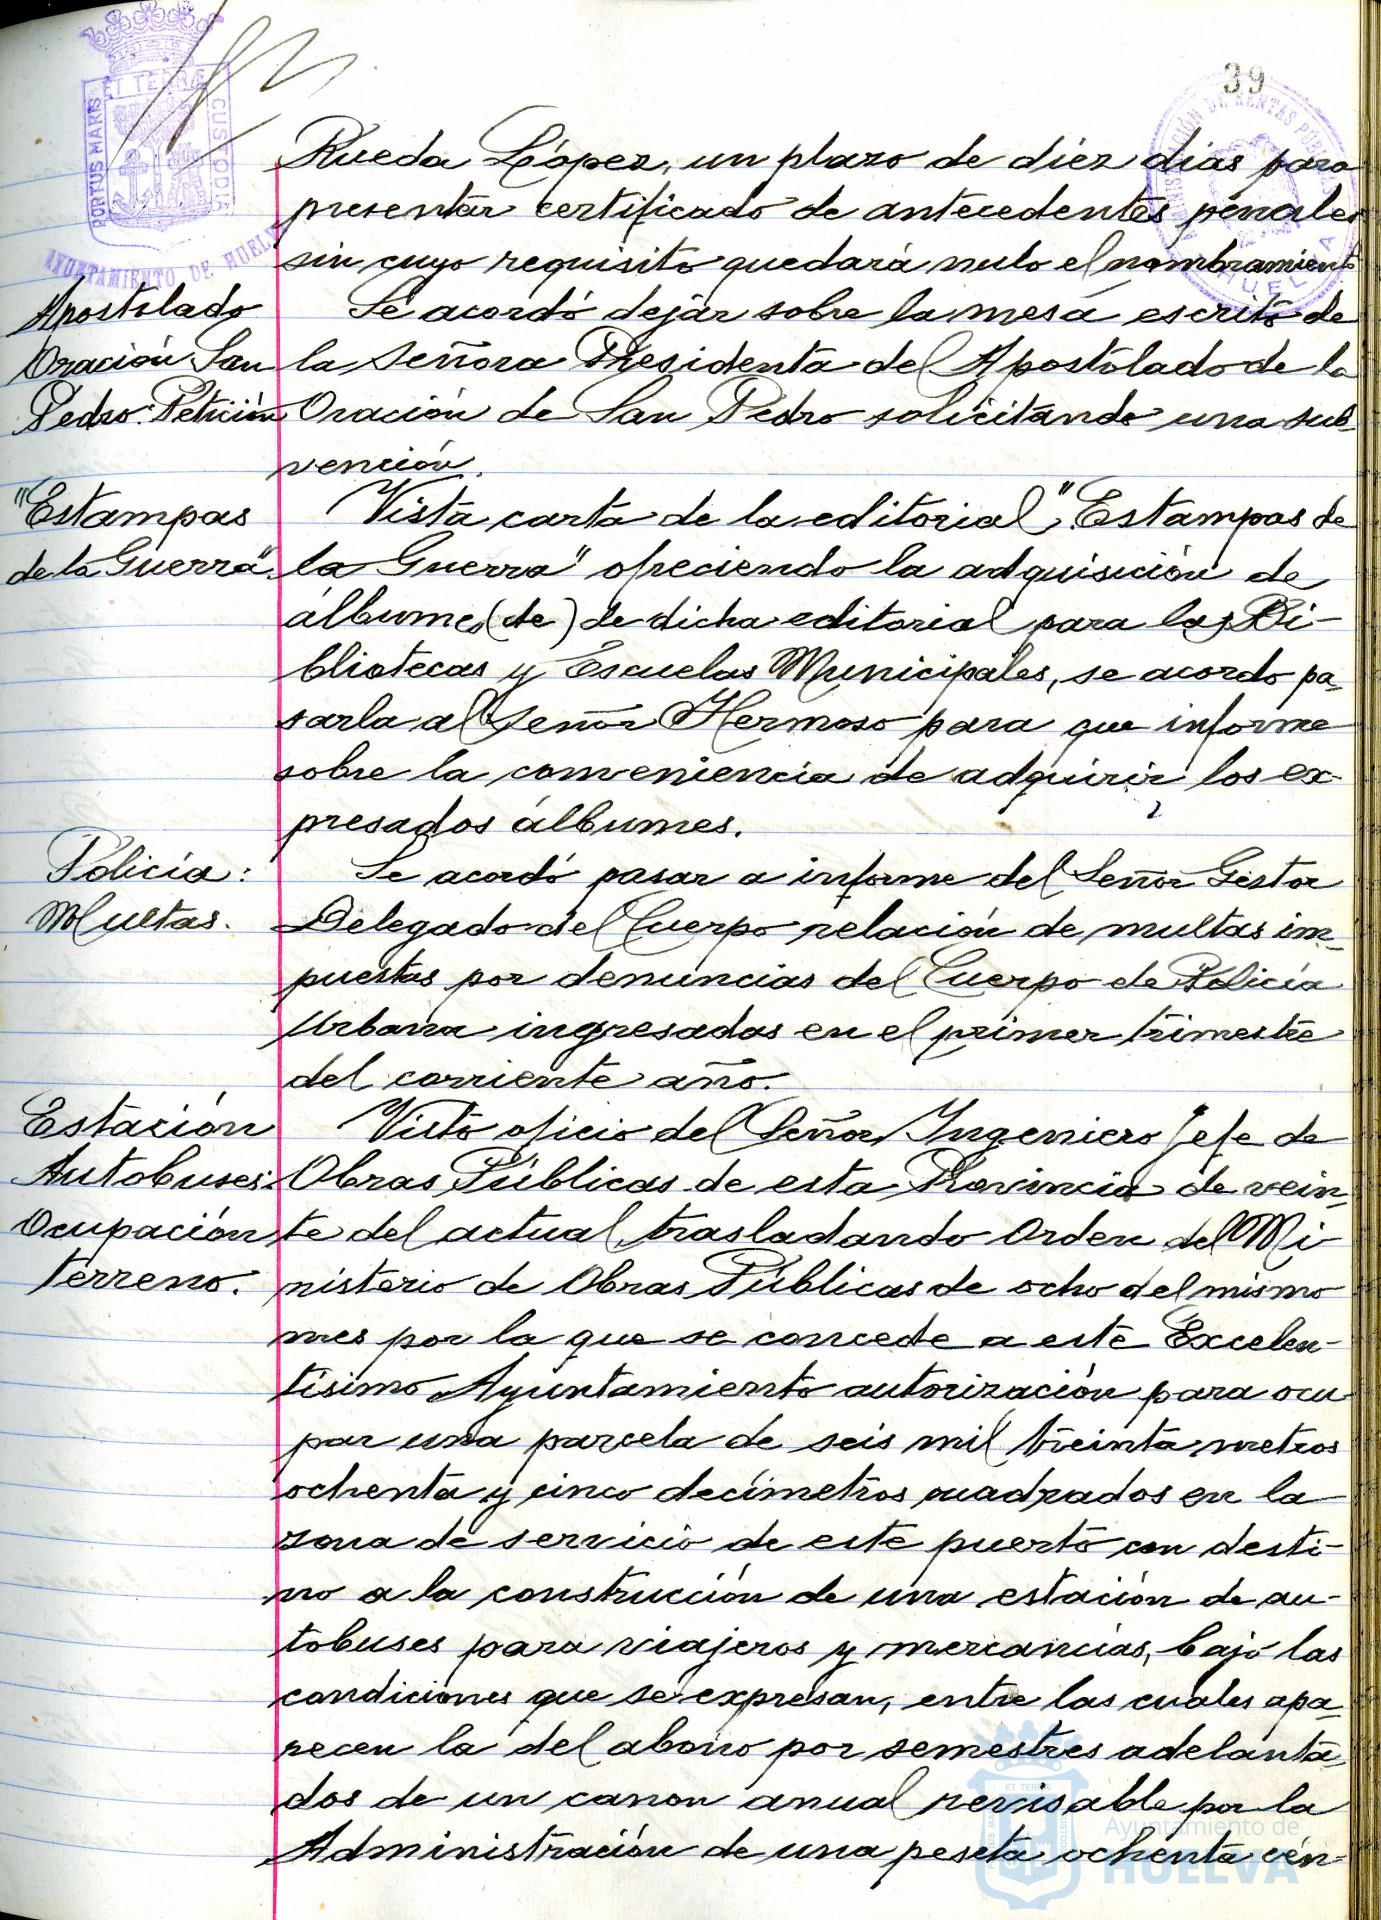 39
PORTUS MARIS ET TERRÆ CUSTODIA
AYUNTAMIENTO DE HUELVA
Rueda López, un plazo de diez dias para
presentar certificado de antecedentes penales
sin cuyo requisito quedará nulo el nombramiento
Apostolado
Oración San
Pedro: Petición
Se acordó dejar sobre la mesa escrito de
la Señora Presidenta del Apostolado de la
Oración de San Pedro solicitando una sub-
vención.
"Estampas
de la Guerra"
Vista carta de la editorial "Estampas de
la Guerra" ofreciendo la adquisición de
álbumes (de) de dicha editorial para las Bi-
bliotecas y Escuelas Municipales, se acordo pa-
sarla al Señor Hermoso para que informe
sobre la conveniencia de adquirir los ex-
presados álbumes.
Policía:
Multas.
Se acordó pasar a informe del Señor Gestor
Delegado del Cuerpo relación de multas im-
puestas por denuncias del Cuerpo de Policía
Urbana ingresadas en el primer trimestre
del corriente año.
Estación
Autobuses:
Ocupación
terreno.
Visto oficio del Señor Ingeniero Jefe de
Obras Públicas de esta Provincia de vein-
te del actual, trasladando Orden del Mi-
nisterio de Obras Públicas de ocho del mismo
mes por la que se concede a este Excelen-
tísimo Ayuntamiento autorización para ocu-
par una parcela de seis mil treinta metros
ochenta y cinco decímetros cuadrados en la
zona de servicio de este puerto con desti-
no a la construcción de una estación de au-
tobuses para viajeros y mercancías, bajo las
condiciones que se expresan, entre las cuales apa-
recen la del abono por semestres adelanta-
dos de un canon anual revisable por la
Administración de una peseta ochenta cén-
Ayuntamiento de
HUELVA